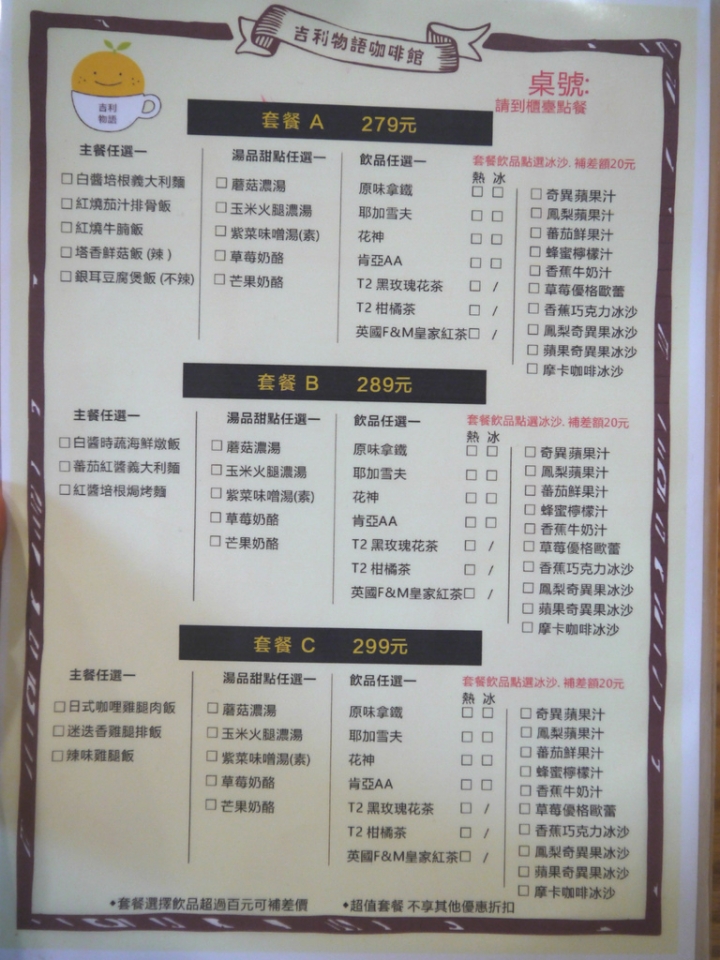 吉利物語咖啡館
吉利
物語
桌號:
請到櫃臺點餐
套餐 A 279元
主餐任選一
□白醬培根義大利麵
□紅燒茄汁排骨飯
□紅燒牛腩飯
□塔香鮮菇飯 (辣 )
□銀耳豆腐煲飯 (不辣)
湯品甜點任選一
□蘑菇濃湯
□玉米火腿濃湯
□紫菜味噌湯(素)
□草莓奶酪
□芒果奶酪
飲品任選一
熱 冰
原味拿鐵 □ □
耶加雪夫 □ □
花神 □ □
肯亞AA □ □
T2 黑玫瑰花茶 □ /
T2 柑橘茶 □ /
英國F&M皇家紅茶□ /
套餐飲品點選冰沙. 補差額20元
□奇異蘋果汁
□鳳梨蘋果汁
□蕃茄鮮果汁
□蜂蜜檸檬汁
□香蕉牛奶汁
□草莓優格歐蕾
□香蕉巧克力冰沙
□鳳梨奇異果冰沙
□蘋果奇異果冰沙
□摩卡咖啡冰沙
套餐 B 289元
主餐任選一
□白醬時蔬海鮮燉飯
□蕃茄紅醬義大利麵
□紅醬培根焗烤麵
湯品甜點任選一
□蘑菇濃湯
□玉米火腿濃湯
□紫菜味噌湯(素)
□草莓奶酪
□芒果奶酪
飲品任選一
熱 冰
原味拿鐵 □ □
耶加雪夫 □ □
花神 □ □
肯亞AA □ □
T2 黑玫瑰花茶 □ /
T2 柑橘茶 □ /
英國F&M皇家紅茶□ /
套餐飲品點選冰沙. 補差額20元
□奇異蘋果汁
□鳳梨蘋果汁
□蕃茄鮮果汁
□蜂蜜檸檬汁
□香蕉牛奶汁
□草莓優格歐蕾
□香蕉巧克力冰沙
□鳳梨奇異果冰沙
□蘋果奇異果冰沙
□摩卡咖啡冰沙
套餐 C 299元
主餐任選一
□日式咖哩雞腿肉飯
□迷迭香雞腿排飯
□辣味雞腿飯
湯品甜點任選一
□蘑菇濃湯
□玉米火腿濃湯
□紫菜味噌湯(素)
□草莓奶酪
□芒果奶酪
飲品任選一
熱 冰
原味拿鐵 □ □
耶加雪夫 □ □
花神 □ □
肯亞AA □ □
T2 黑玫瑰花茶 □ /
T2 柑橘茶 □ /
英國F&M皇家紅茶□ /
套餐飲品點選冰沙. 補差額20元
□奇異蘋果汁
□鳳梨蘋果汁
□蕃茄鮮果汁
□蜂蜜檸檬汁
□香蕉牛奶汁
□草莓優格歐蕾
□香蕉巧克力冰沙
□鳳梨奇異果冰沙
□蘋果奇異果冰沙
□摩卡咖啡冰沙
◆套餐選擇飲品超過百元可補差價 ◆超值套餐 不享其他優惠折扣